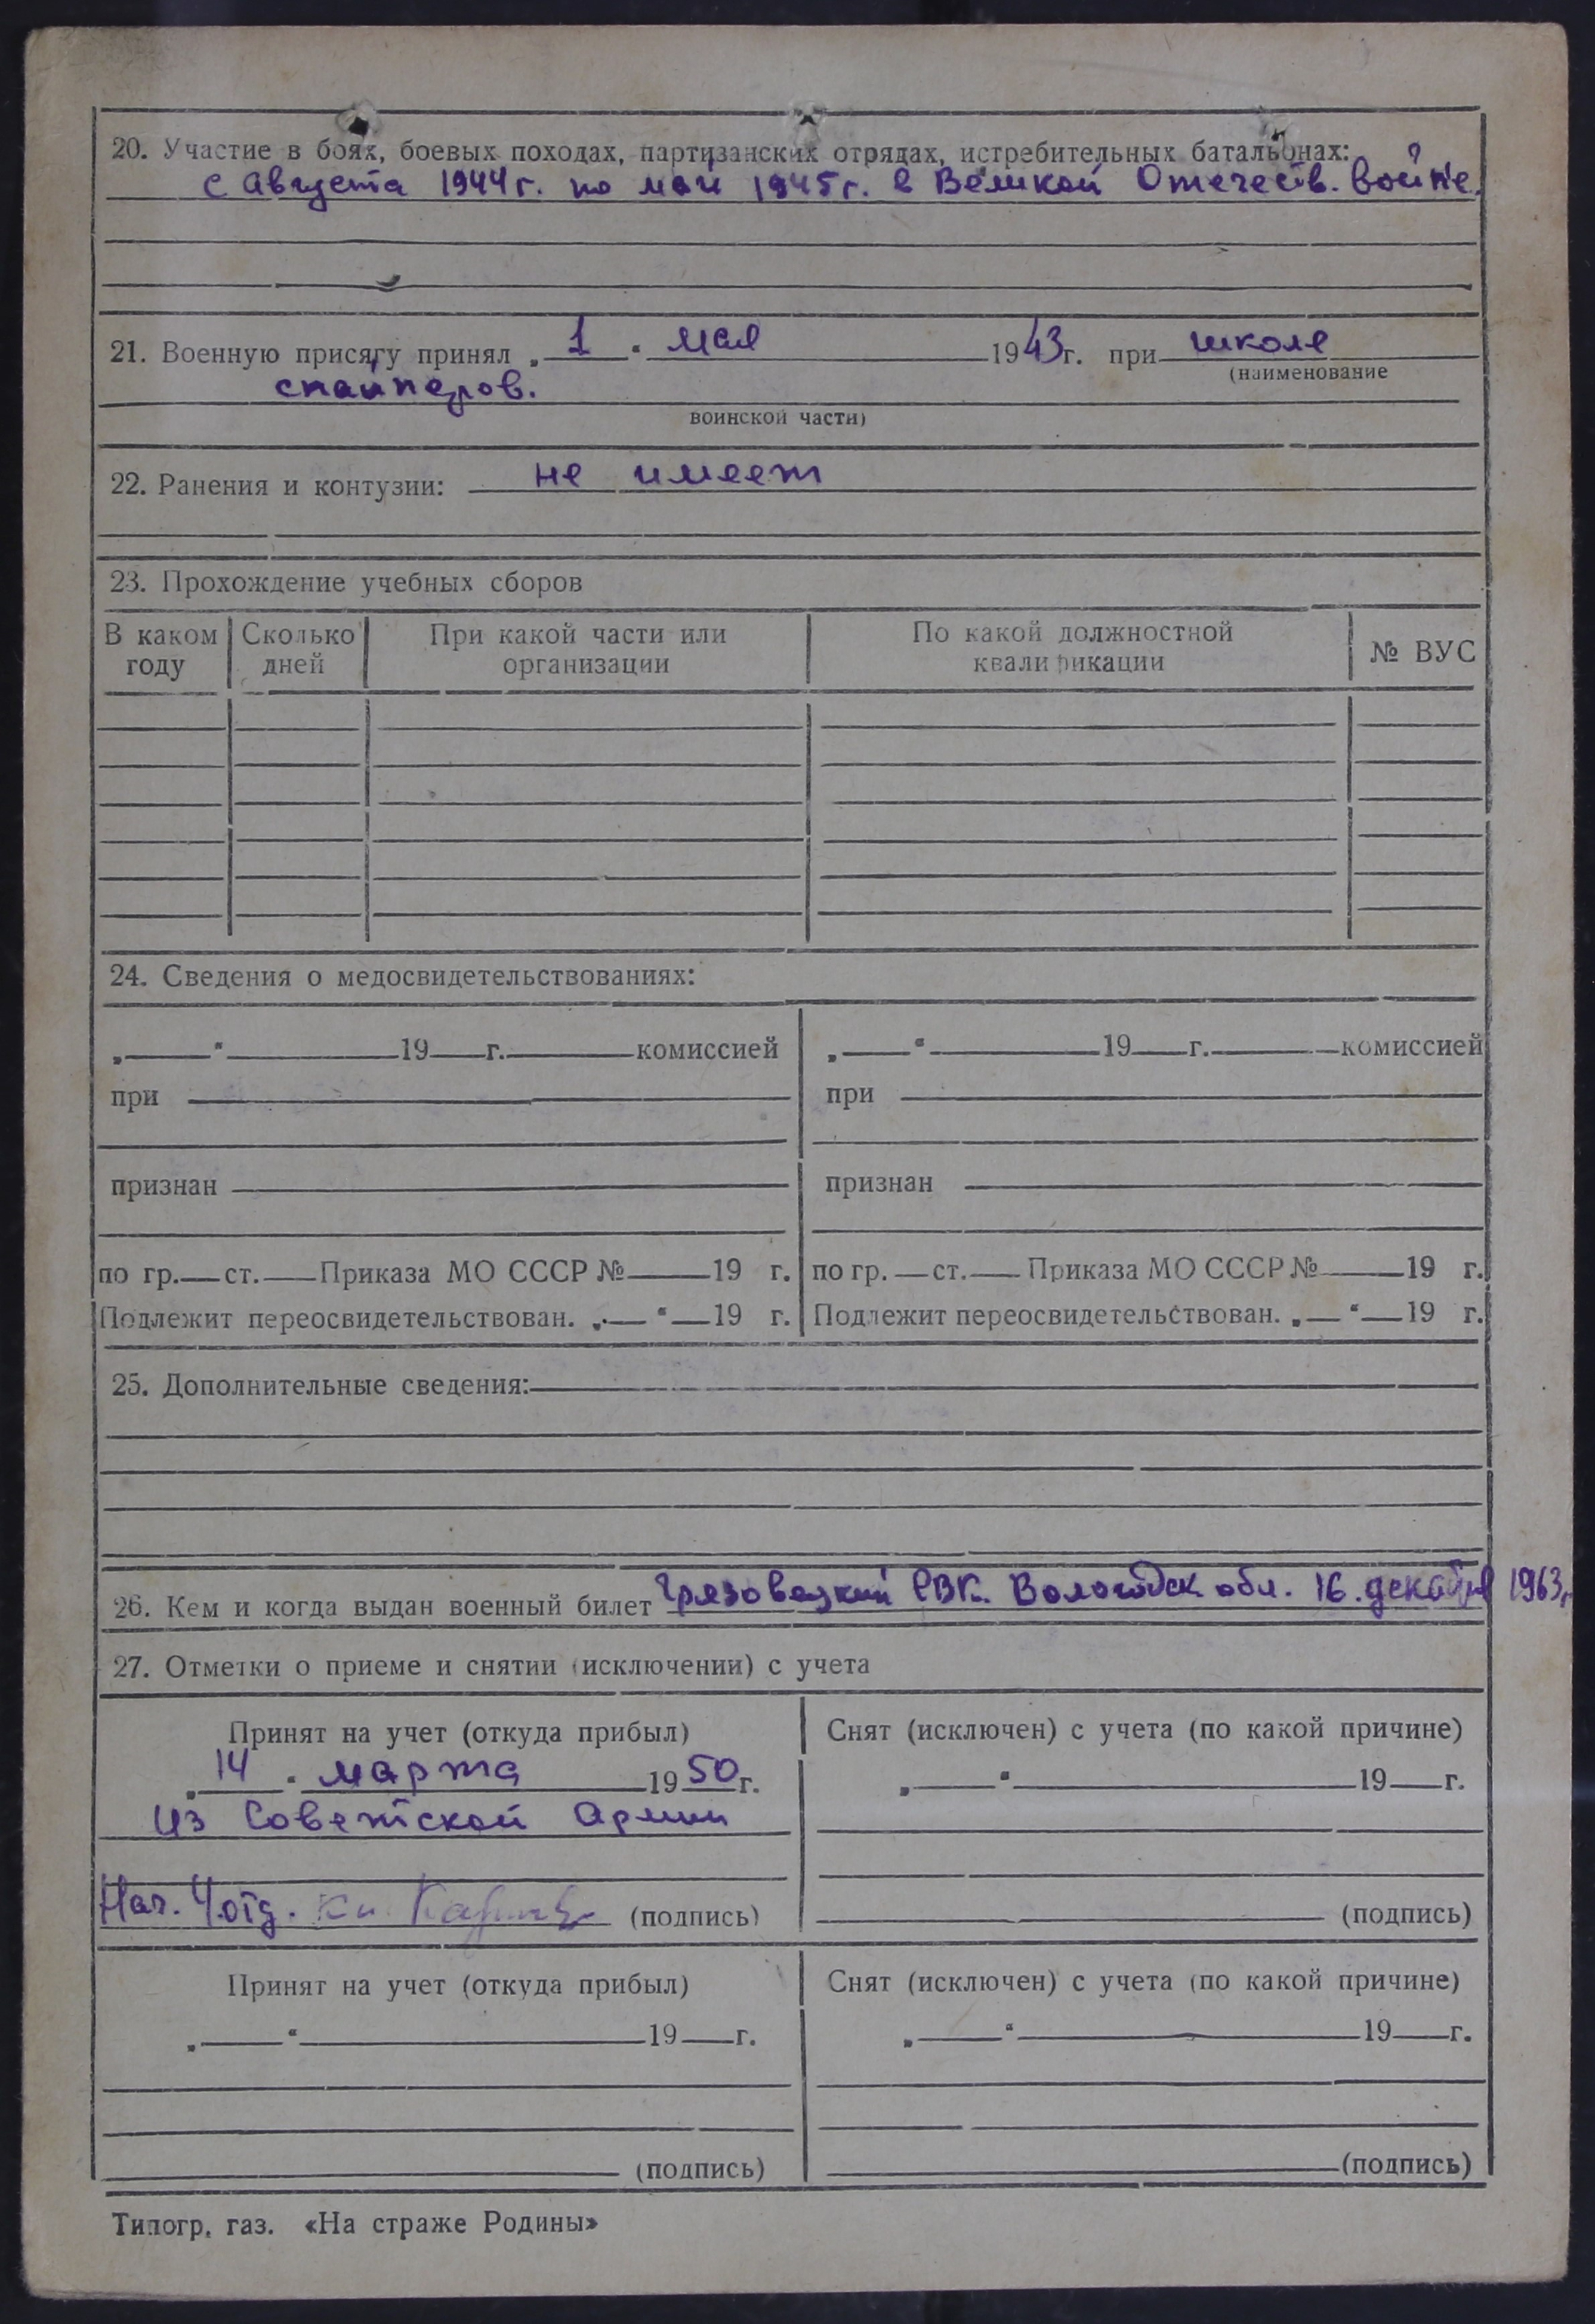 20. Участие в боях, боевых походах, партизанских отрядах, истребительных батальонах:
с Августа 1944 г. по май 1945 г. в Великой Отечеств. войне.
21. Военную присягу принял „ 1 “ мая 1943 г. при школе
(наименование
снайперов.
воинской части)
22. Ранения и контузии: не имеет
23. Прохождение учебных сборов
В каком году Сколько дней При какой части или организации По какой должностной квалификации № ВУС
24. Сведения о медосвидетельствованиях:
„ “ 19 г. комиссией „ “ 19 г. комиссией
при при
признан признан
по гр. ст. Приказа МО СССР № 19 г. по гр. ст. Приказа МО СССР № 19 г.
Подлежит переосвидетельствован. „ “ 19 г. Подлежит переосвидетельствован. „ “ 19 г.
25. Дополнительные сведения:
26. Кем и когда выдан военный билет Грязовецкий РВК. Вологодск обл. 16. декабря 1963 г.
27. Отметки о приеме и снятии (исключении) с учета
Принят на учет (откуда прибыл) Снят (исключен) с учета (по какой причине)
„ 14 “ марта 1950 г. „ “ 19 г.
из Советской Армии
Нач. 4 отд. (подпись) (подпись)
Принят на учет (откуда прибыл) Снят (исключен) с учета (по какой причине)
„ “ 19 г. „ “ 19 г.
(подпись) (подпись)
Типогр. газ. «На страже Родины»